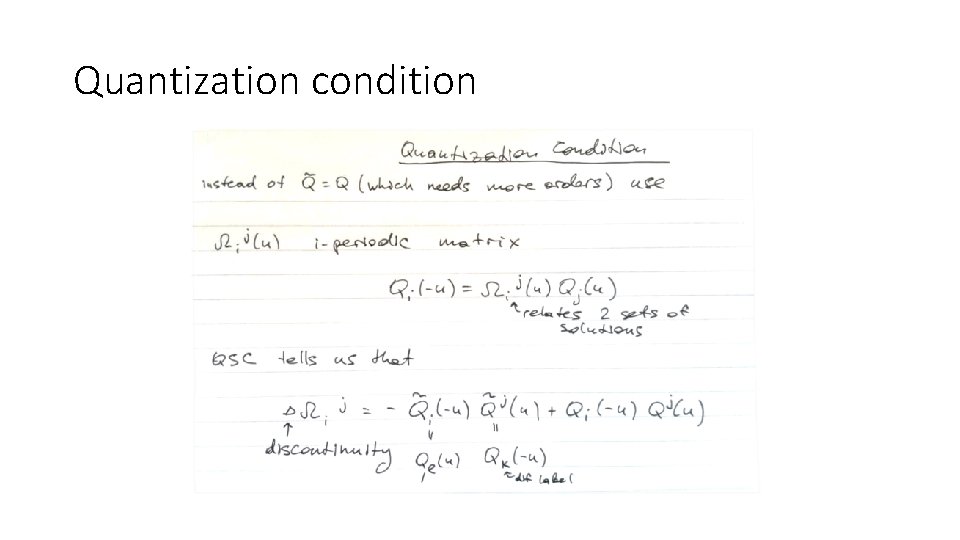 Quantization condition
Quantization Condition
instead of Q̃ = Q (which needs more orders) use
Ωᵢʲ(u) i-periodic matrix
Qᵢ(-u) = Ωᵢʲ(u) Qⱼ(u)
↑ relates 2 sets of
solutions
QSC tells us that
ΔΩᵢʲ = - Q̃ᵢ(-u) Q̃ʲ(u) + Qᵢ(-u) Qʲ(u)
↑ " "
discontinuity Qₑ(u) Qₖ(-u)
label